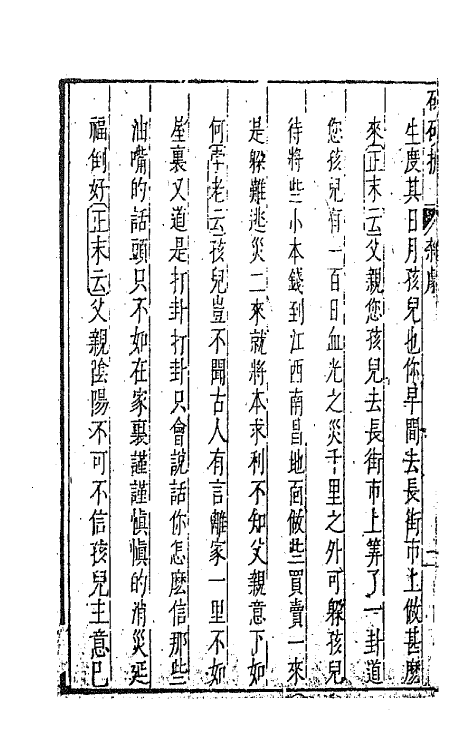 生度其日月孩兒也你早間去長街市上做甚麽
來正末云父親您孩兒去長街市上筭了一卦道
您孩兒有一百日血光之災千里之外可躱孩兒
待將些小本錢到江西南昌地面做些買賣一來
是躱難逃災二來就將本求利不知父親意下如
何孛老云孩兒豈不聞古人有言離家一里不如
屋裏又道是打卦打卦只會說話你怎麽信那些
油嘴的話頭只不如在家裏謹謹愼愼的消災延
福倒好正末云父親陰陽不可不信孩兒主意已